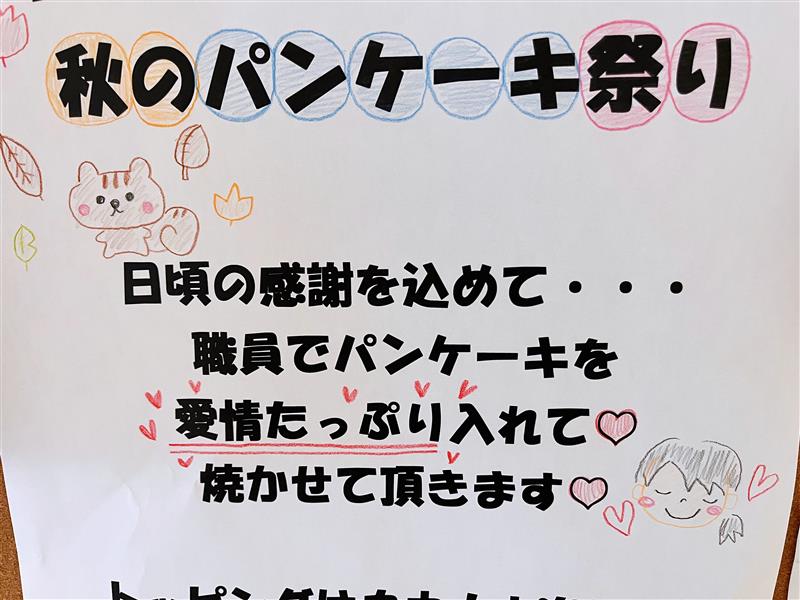 秋のパンケーキ祭り
日頃の感謝を込めて・・・
職員でパンケーキを
愛情たっぷり入れて♥
焼かせて頂きます♥
トッピングは